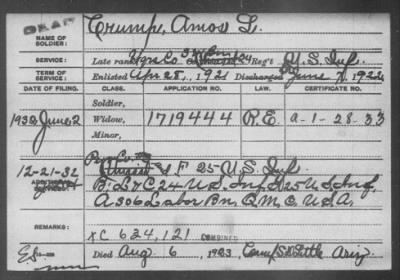 DEAD
Crump, Amos G.
NAME OF SOLDIER:
SERVICE: Late rank, Hqrs Co. 3rd Bn 24 Reg't U.S. Inf.
TERM OF SERVICE: Enlisted Apr 28, 1921 Discharged June 7, 1922
DATE OF FILING. CLASS. APPLICATION NO. LAW. CERTIFICATE NO.
Soldier,
1932 June 2 Widow, 1719444 R.E. a-1-28-33
Minor,
12-21-32 F 25 U.S. Inf.
ADDITIONAL SERVICES: B. & C 24 U.S. Inf & 25 U.S. Inf,
A 306 Labor Bn, Q.M.C. U.S.A.
REMARKS: XC 634,121 COMBINED
Died Aug 6, 1923, Camp S.D. Little Ariz.